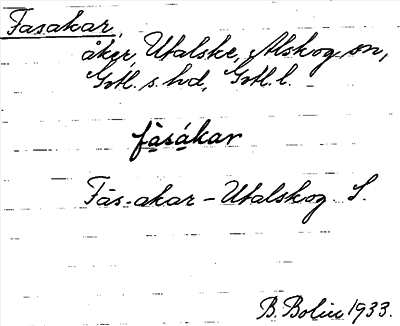 Fasakar,
åker, Utalske, Alskog sn,
Gotl. s. hd, Gotl. l.
fàsákar
Fas-akar - Utalskog S.
B. Bolin 1933.